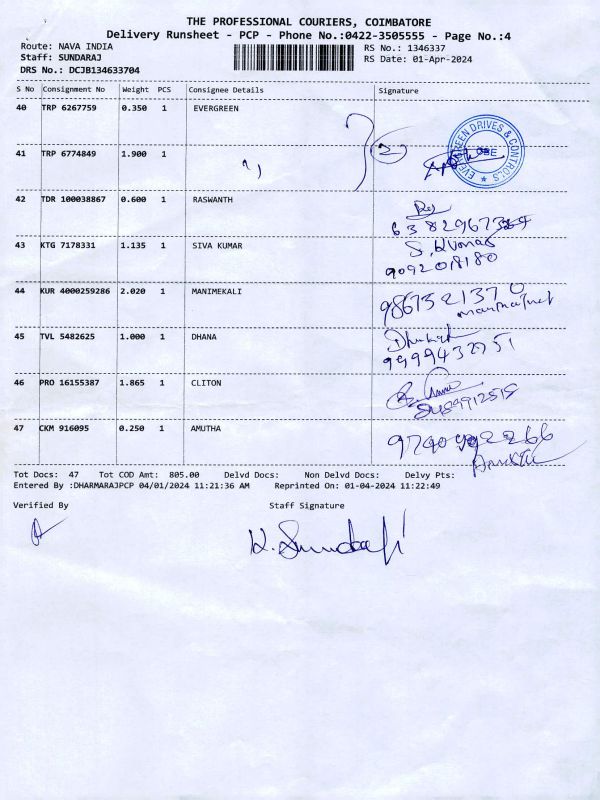 THE PROFESSIONAL COURIERS, COIMBATORE
Delivery Runsheet - PCP - Phone No.:0422-3505555 - Page No.:4
Route: NAVA INDIA
Staff: SUNDARAJ
DRS No.: DCJB134633704
RS No.: 1346337
RS Date: 01-Apr-2024
S No Consignment No Weight PCS Consignee Details Signature
40 TRP 6267759 0.350 1 EVERGREEN
EVERGREEN DRIVES & CONTROLS
CBE
41 TRP 6774849 1.900 1
42 TDR 100038867 0.600 1 RASWANTH
43 KTG 7178331 1.135 1 SIVA KUMAR
S. Kumar
9092018180
44 KUR 4000259286 2.020 1 MANIMEKALI
9867321370
45 TVL 5482625 1.000 1 DHANA
46 PRO 16155387 1.865 1 CLITON
47 CKM 916095 0.250 1 AMUTHA
Tot Docs: 47 Tot COD Amt: 805.00 Delvd Docs: Non Delvd Docs: Delvy Pts:
Entered By :DHARMARAJPCP 04/01/2024 11:21:36 AM Reprinted On: 01-04-2024 11:22:49
Verified By Staff Signature